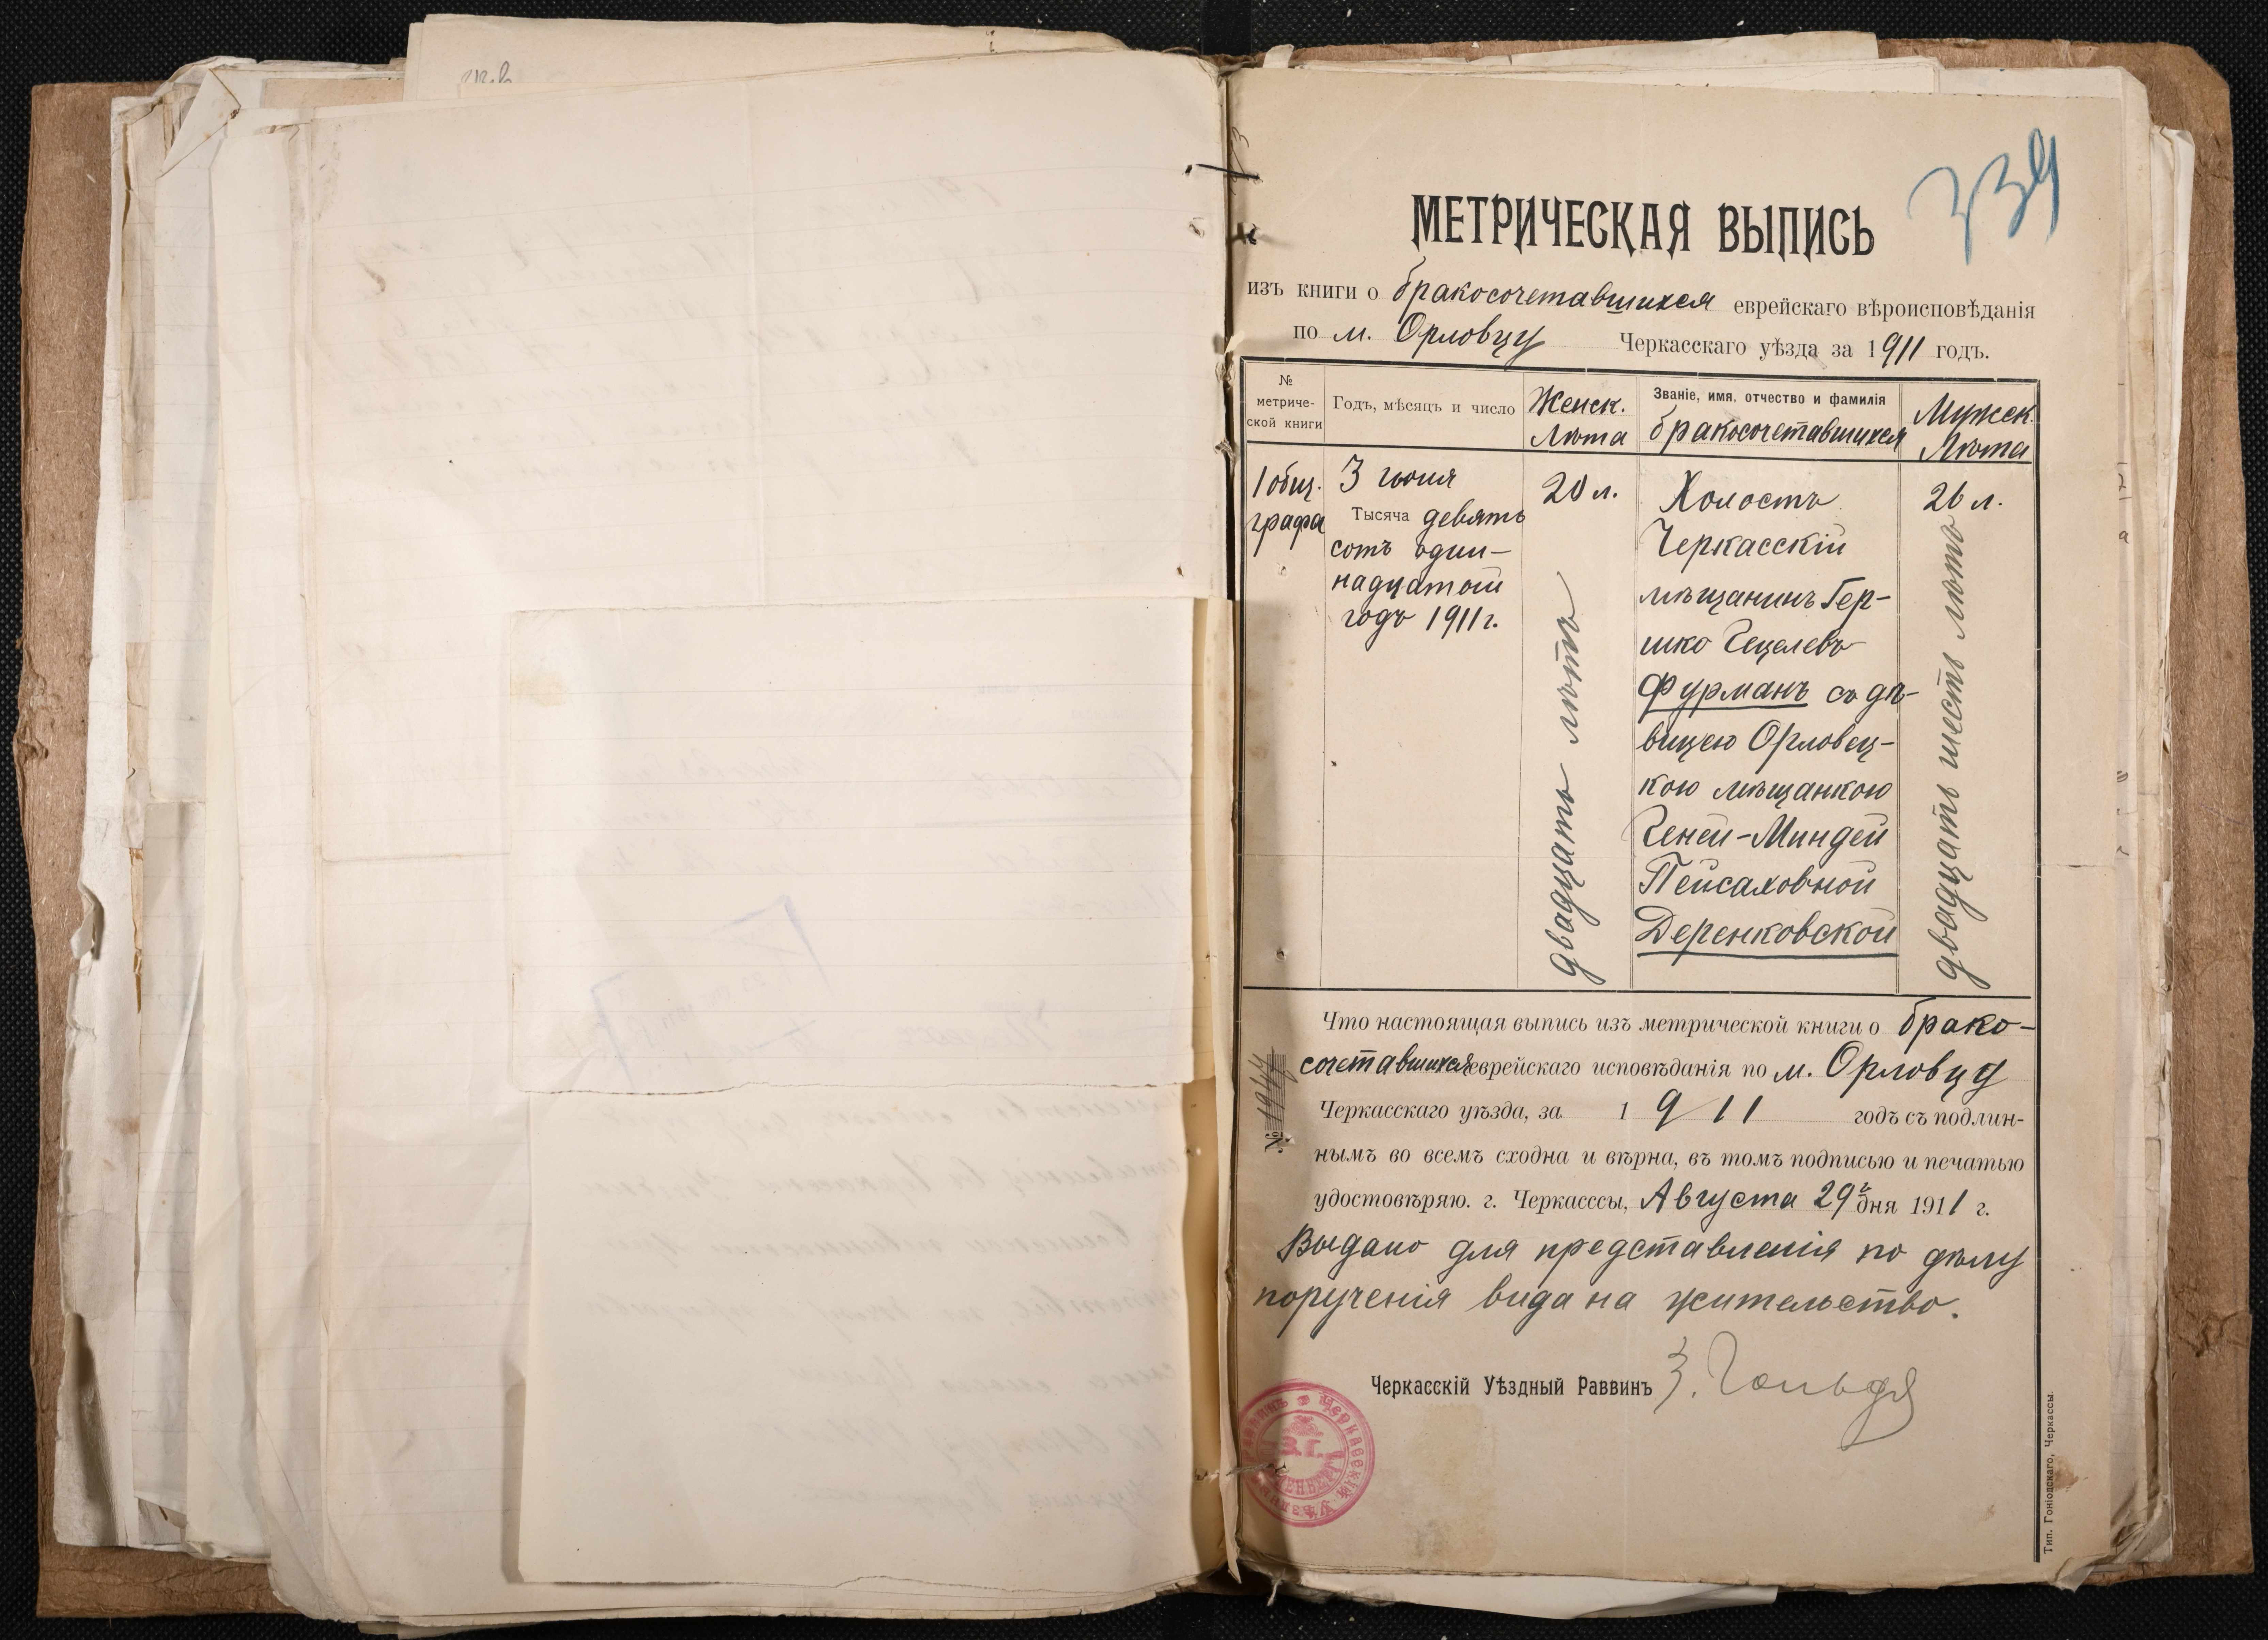 339
МЕТРИЧЕСКАЯ ВЫПИСЬ
изъ книги о бракосочетавшихся еврейскаго вѣроисповѣданія
по м. Орловцу Черкасскаго уѣзда за 1911 годъ.
№ метриче-ской книги
Годъ, мѣсяцъ и число
Женск. Лѣта
Званіе, имя, отчество и фамилія бракосочетавшихся
Мужск. Лѣта
1 общ. графа
3 іюня
Тысяча девять
сотъ один-
надцатой
годъ 1911 г.
20 л.
двадцать лѣтъ
Холостъ
Черкасскій
мѣщанинъ Гер-
шко Гецелевъ
Фурманъ съ дѣ-
вицею Орловец-
кою мѣщанкою
Геней-Миндей
Пейсаховной
Деренковской
26 л.
двадцать шесть лѣтъ
Что настоящая выпись изъ метрической книги о брако-
сочетавшихся еврейскаго исповѣданія по м. Орловцу
Черкасскаго уѣзда, за 1911 годъ съ подлин-
нымъ во всемъ сходна и вѣрна, въ томъ подписью и печатью
удостовѣряю. г. Черкасссы, Августа 29 дня 1911 г.
№ 1944
Выдано для представленія по дѣлу
порученія вида на жительство.
Черкасскій Уѣздный Раввинъ
Тип. Гоніодскаго, Черкассы.